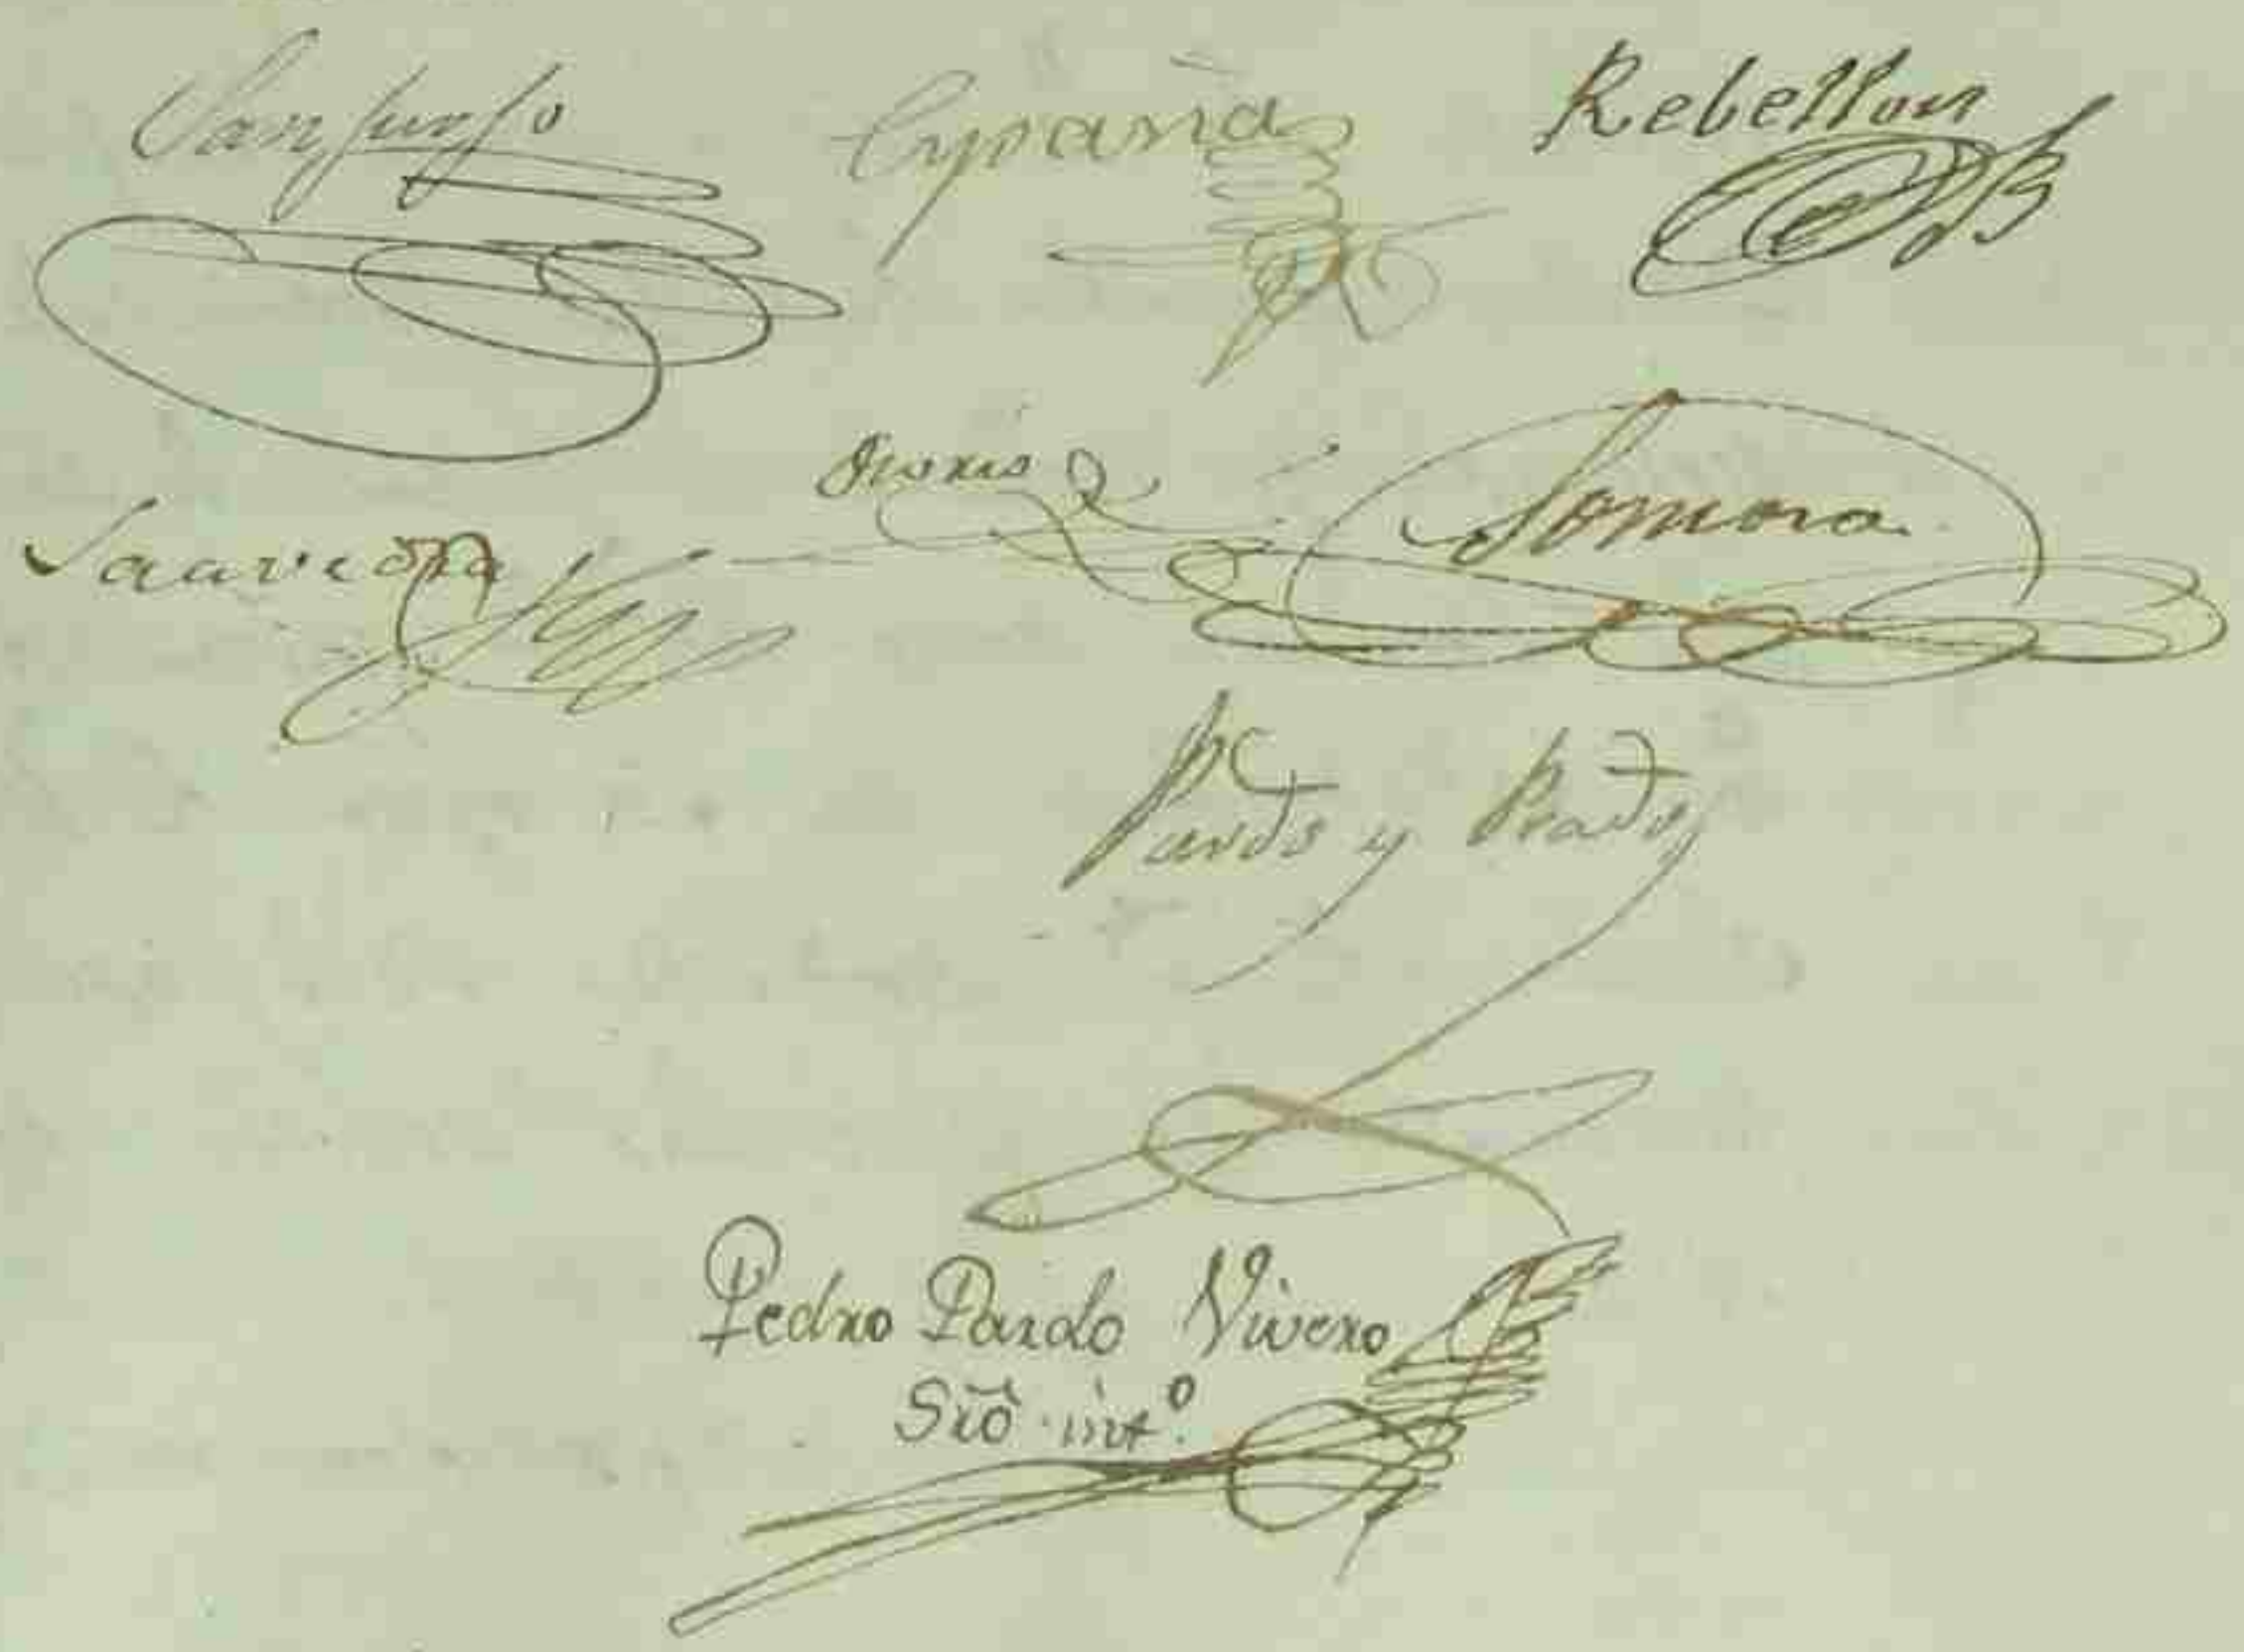 Sanjurjo Rebellon
Saavedra Somoza
Pardo y Prado
Pedro Pardo Vivero
Srõ. int.º